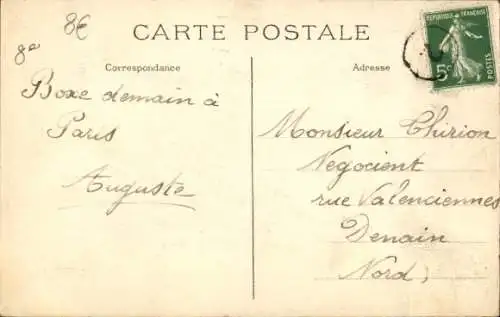 8e
8€
CARTE POSTALE
Correspondance
Adresse
RÉPUBLIQUE FRANÇAISE
5c
POSTES
Boxe demain à
Paris
Auguste
Monsieur Thirion
Negocient
rue Valenciennes
Denain
Nord,